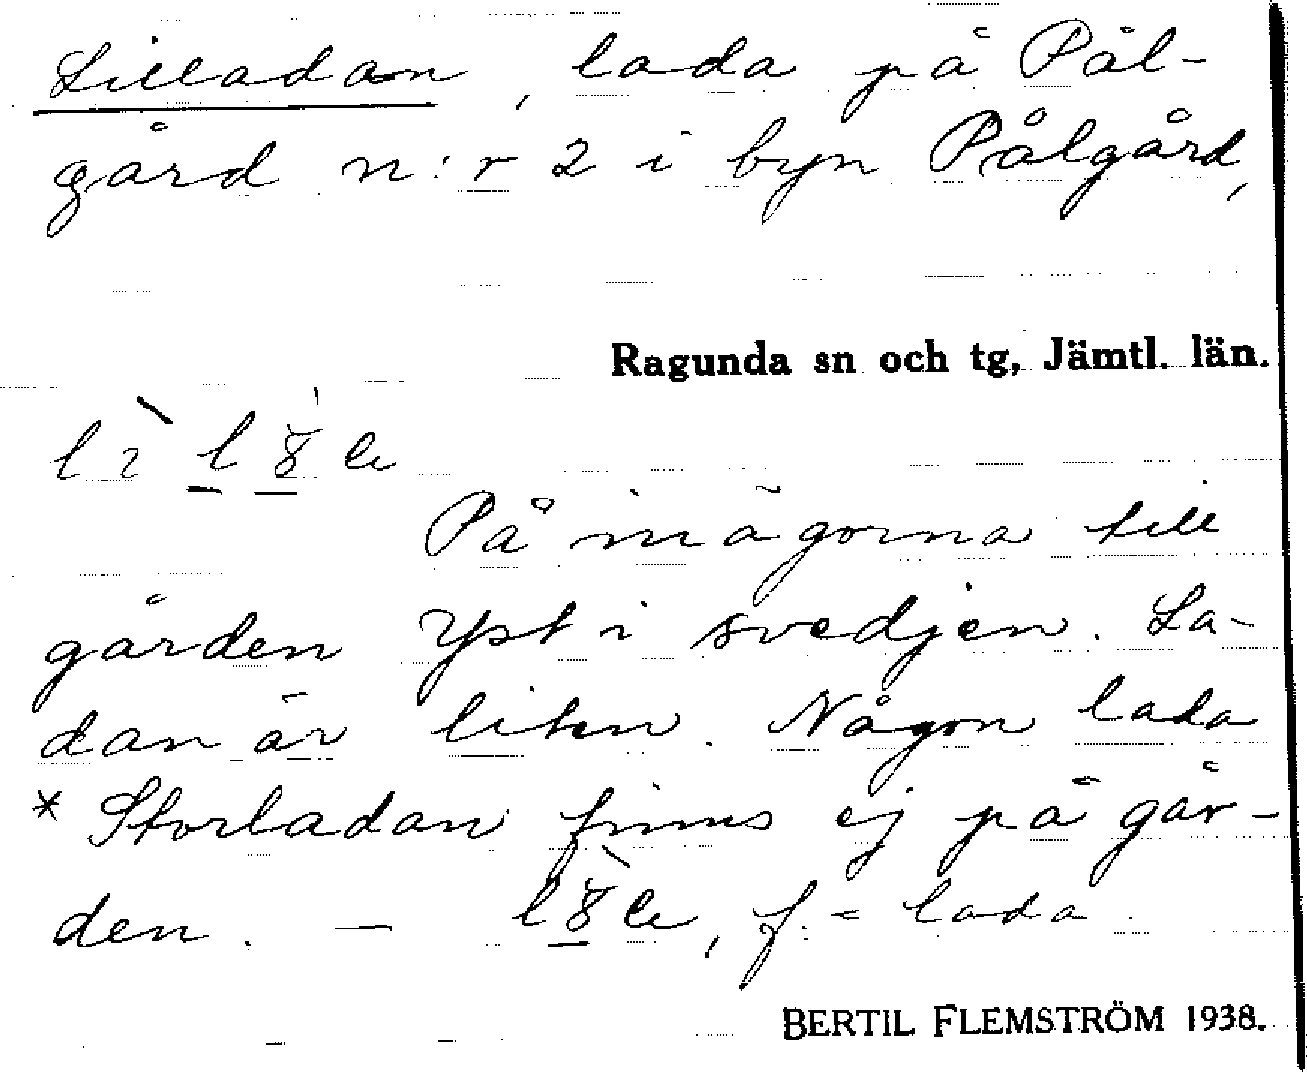 Lilladan, lada på Pål-
gård n:r 2 i byn Pålgård,
Ragunda sn och tg, Jämtl. län.
På inägorna till
gården Yst i svedjen. La-
dan är liten. Någon lada
* Storladan finns ej på går-
den. — , f. = lada.
BERTIL FLEMSTRÖM 1938.